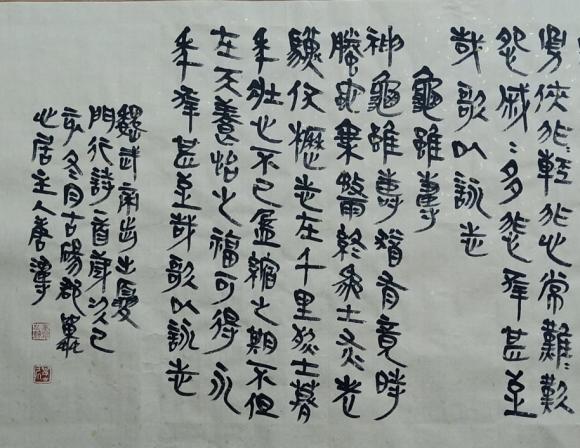 勇俠輕非心常歎
怨戚:多悲幸甚至
哉歌以詠志
龜雖壽
神龜雖壽猶有竟時
騰蛇乘霧終為土灰老
驥伏櫪志在千里烈士暮
年壯心不已盈縮之期不但
在天養怡之福可得永
年幸甚至哉歌以詠志
魏武帝步出夏
門行詩首歲次己
亥冬月古碭郡
心居主人唐